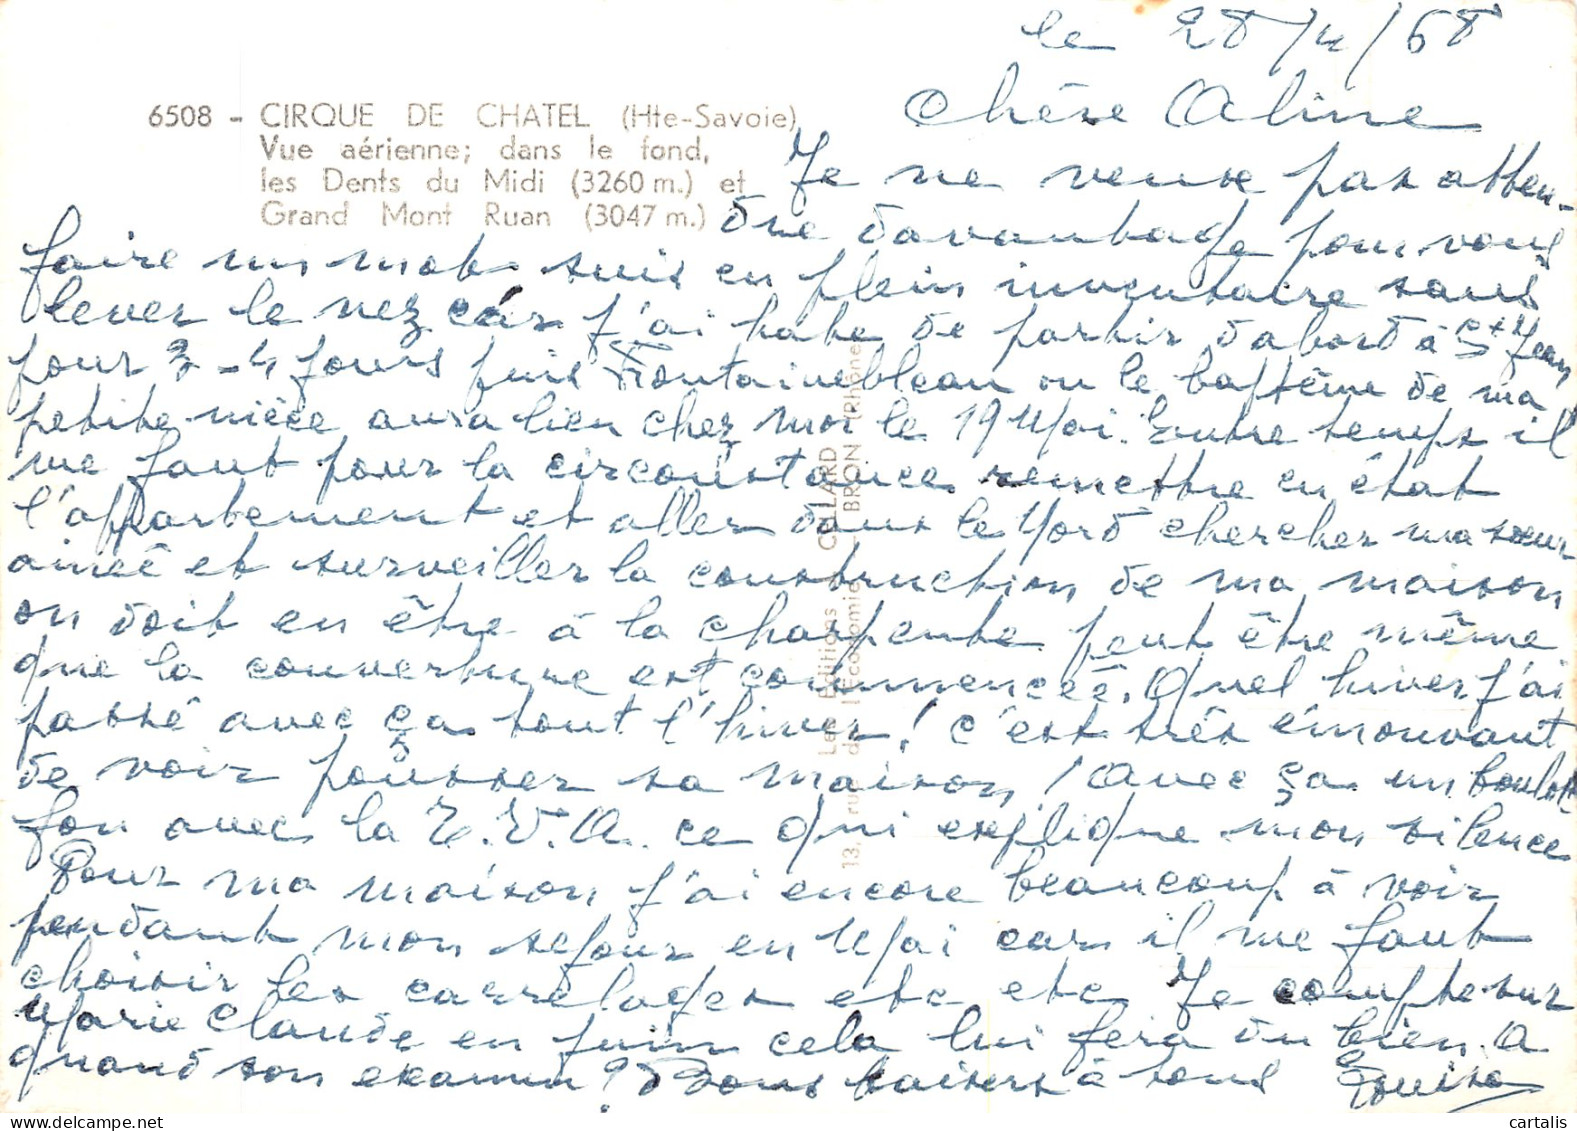 le 28/4/68
Chère Aline
6508 - CIRQUE DE CHATEL (Hte-Savoie)
Vue aérienne; dans le fond,
les Dents du Midi (3260 m.) et
Grand Mont Ruan (3047 m.)
Je ne veux pas atten-
dre davantage pour vous
faire un mot suis en plein inventaire sans
lever le nez car j'ai hate de partir d'abord à St Jean
pour 3-4 jours puis Fontainebleau ou le baptême de ma
petite nièce aura lieu chez moi le 19 Mai. Entre temps il
me faut pour la circonstance remettre en état
l'appartement et aller dans le Nord chercher ma sœur
ainée et surveiller la construction de ma maison
on doit en être à la charpente peut être même
que la couverture est commencée. Quel hiver j'ai
passé avec ça tout l'hiver! c'est très émouvant
de voir pousser sa maison! Avec ça un boulot
fou avec la T.V.A. ce qui explique mon silence
Pour ma maison j'ai encore beaucoup à voir
pendant mon séjour en Mai car il me faut
choisir les carrelages etc etc Je compte sur
Marie Claude en juin cela lui fera du bien. A
quand son examen? Bons baisers à tous Louise
Les Editions COLLARD
13, rue de l'Economie - BRON (Rhône)
cartalis